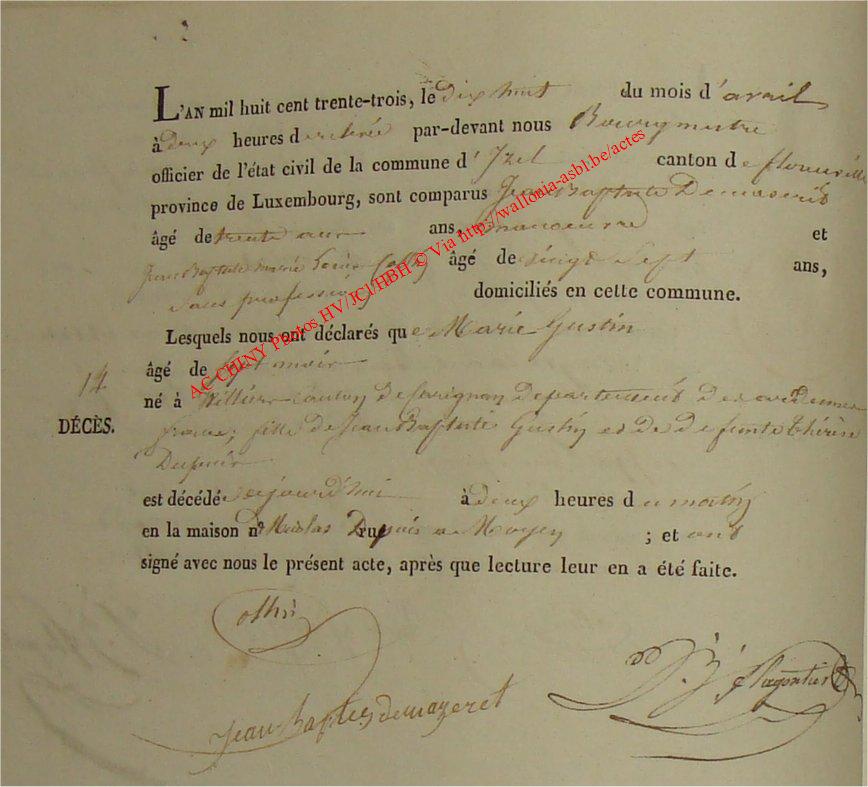 L'AN mil huit cent trente-trois, le dix huit du mois d'avril
à deux heures de relevée par-devant nous Bourgmestre
officier de l'état civil de la commune d'Izel canton de florenville
province de Luxembourg, sont comparus Jean Baptiste Demaseret
âgé de trente ans, manoeuvre et
Jean Baptiste Marie âgé de vingt Sept ans,
sans profession domiciliés en cette commune.
Lesquels nous ont déclarés que Marie Gustin
âgé de Sept mois
14
né à Williers Canton de Carignan Departement Des ardennes
DÉCÈS.
france; fille de Jean Baptiste Gustin et de defunte thérèse
Dupuis
est décédé aujourd'hui à deux heures du matin
en la maison n° Nicolas Dupuis rue a Moyen ; et ont
signé avec nous le présent acte, après que lecture leur en a été faite.
Jean Baptes demazeret
AC CHINY Photos HV/JCl/HBH © Via http://wallonia-asbl.be/actes